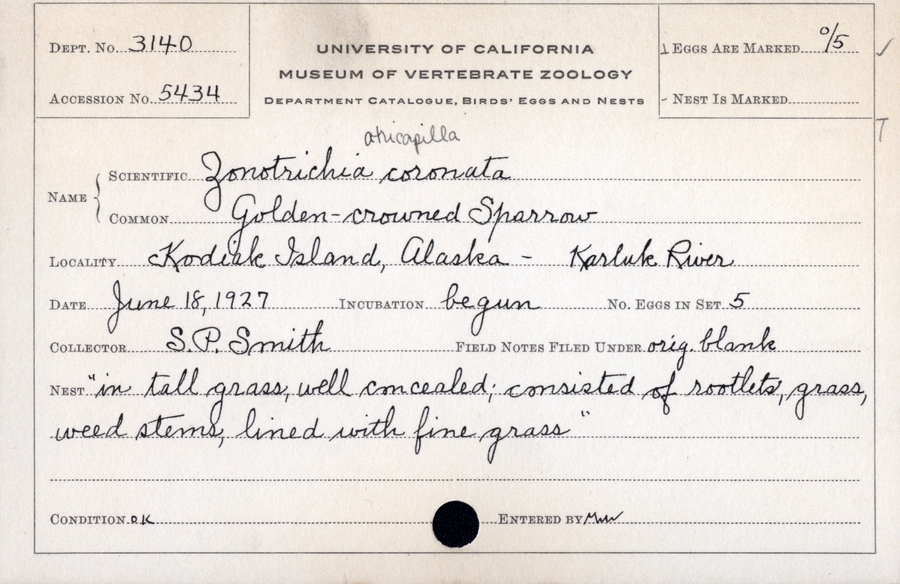 DEPT. No. 3140
UNIVERSITY OF CALIFORNIA
MUSEUM OF VERTEBRATE ZOOLOGY
DEPARTMENT CATALOGUE, BIRDS' EGGS AND NESTS
EGGS ARE MARKED o/5 ✓
ACCESSION No. 5434
- NEST IS MARKED
T
atricapilla
NAME { SCIENTIFIC Zonotrichia coronata
COMMON Golden-crowned Sparrow
LOCALITY Kodiak Island, Alaska - Karluk River
DATE June 18, 1927 INCUBATION begun No. EGGS IN SET 5
COLLECTOR S.P. Smith FIELD NOTES FILED UNDER orig. blank
NEST "in tall grass, well concealed; consisted of rootlets, grass,
weed stems, lined with fine grass"
CONDITION OK ENTERED BY